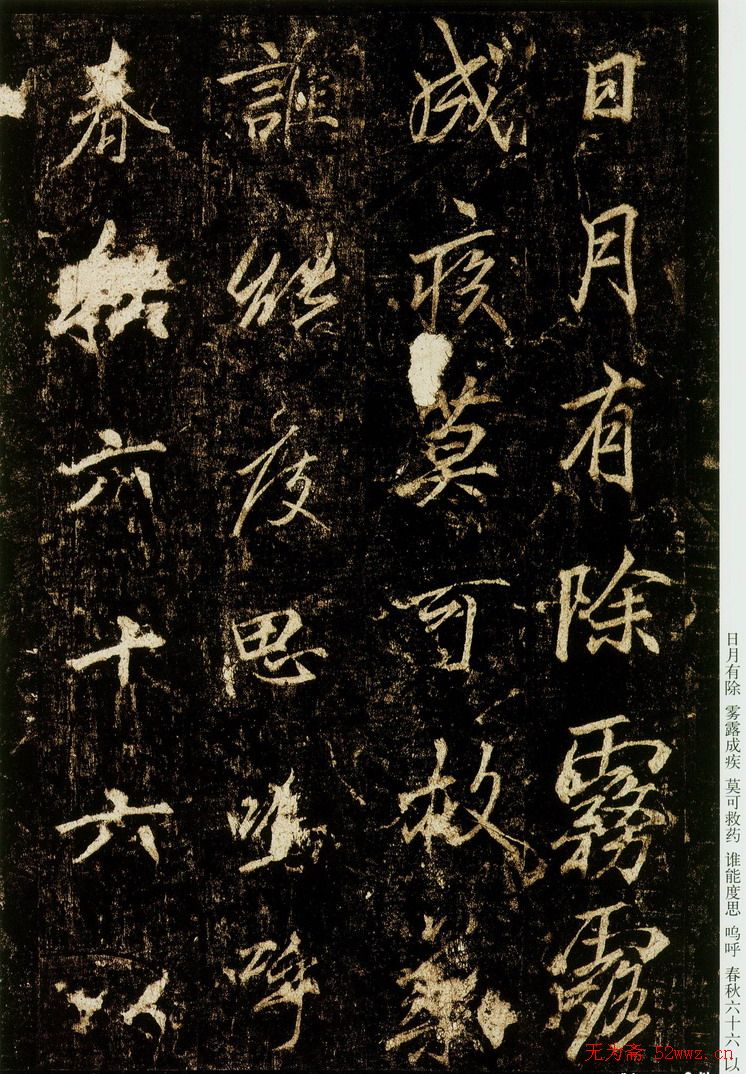 日月有除霧露
成疾莫可救藥
誰能度思嗚呼
春秋六十六以
日月有除 雾露成疾 莫可救药 谁能度思 呜呼 春秋六十六 以
无为斋 52wwz.cn